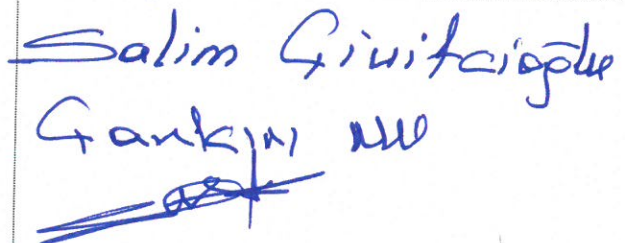 Salim Çivitcioğlu
Çankırı MV